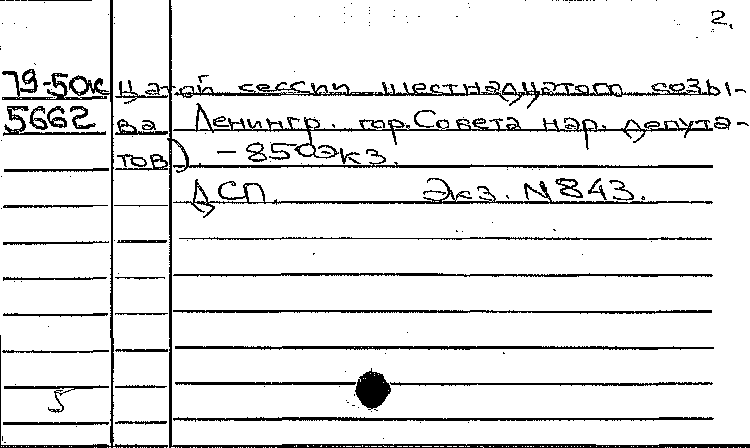 2.
79-50к цатой сессии шестнадцатого созы-
5662 ва Ленингр. гор. Совета нар. депута-
тов). - 850экз.
ДСП. Экз. N843.
5